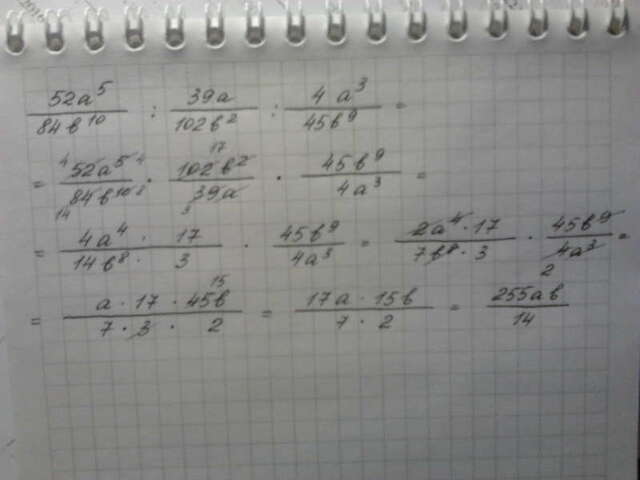 52a⁵/84b¹⁰ : 39a/102b² : 4a³/45b⁹ =
= ⁴52a⁵ ⁴/₁₄84b¹⁰ ⁸ · 102b² ¹⁷/₃39a · 45b⁹/4a³ =
= 4a⁴ · 17/14b⁸ · 3 · 45b⁹/4a³ = 2a⁴ · 17/7b⁸ · 3 · 45b⁹/4a³ ₂ =
= a · 17 · 45b ¹⁵/7 · 3 · 2 = 17a · 15b/7 · 2 = 255ab/14